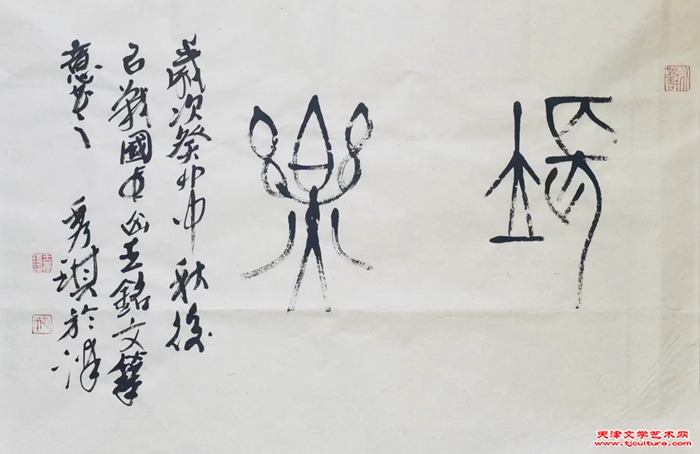 樂
歲次癸卯中秋後
以戰國中山王銘文筆
意書之 琪於津
天津文学艺术网
www.tjculture.com